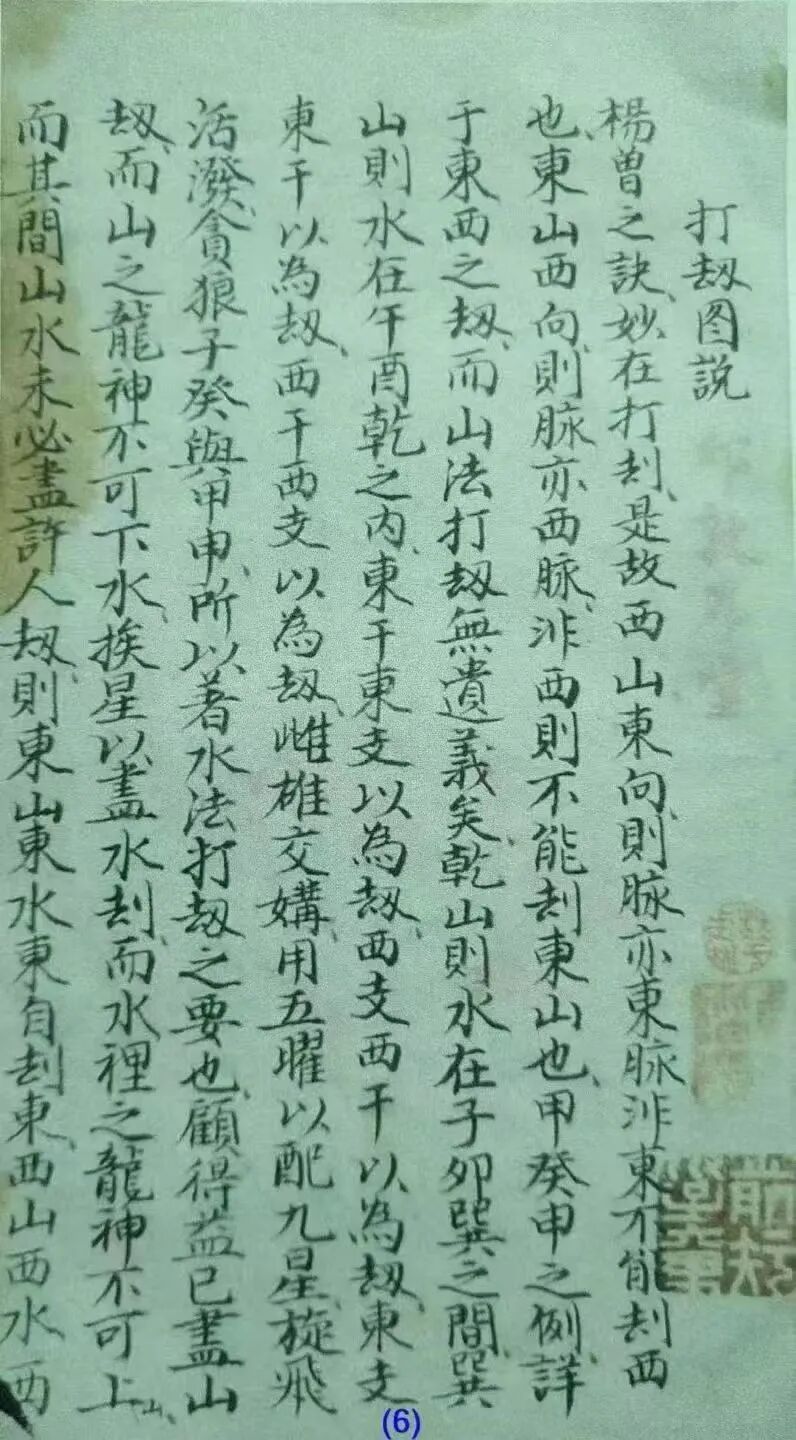 打刼图說
楊曾之訣妙在打刦是故西山東向則脉亦東脉非東不能刦西
也東山西向則脉亦西脉非西則不能刦東山也甲癸申之例詳
于東西之刼而山法打刼無遺義矣乾山則水在子卯巽之間巽
山則水在午酉乾之内東干東支以為刼西支西干以為刼東支
東干以為刼西干西支以為刼雌雄交媾用五曜以配九星旋飛
活潑貪狼子癸與甲申所以著水法打刼之要也顧得益已盡山
刼而山之龍神不可下水挨星以盡水刦而水裡之龍神不可上山
而其間山水未必盡許人刼則東山東水東自刦東西山西水西
(6)